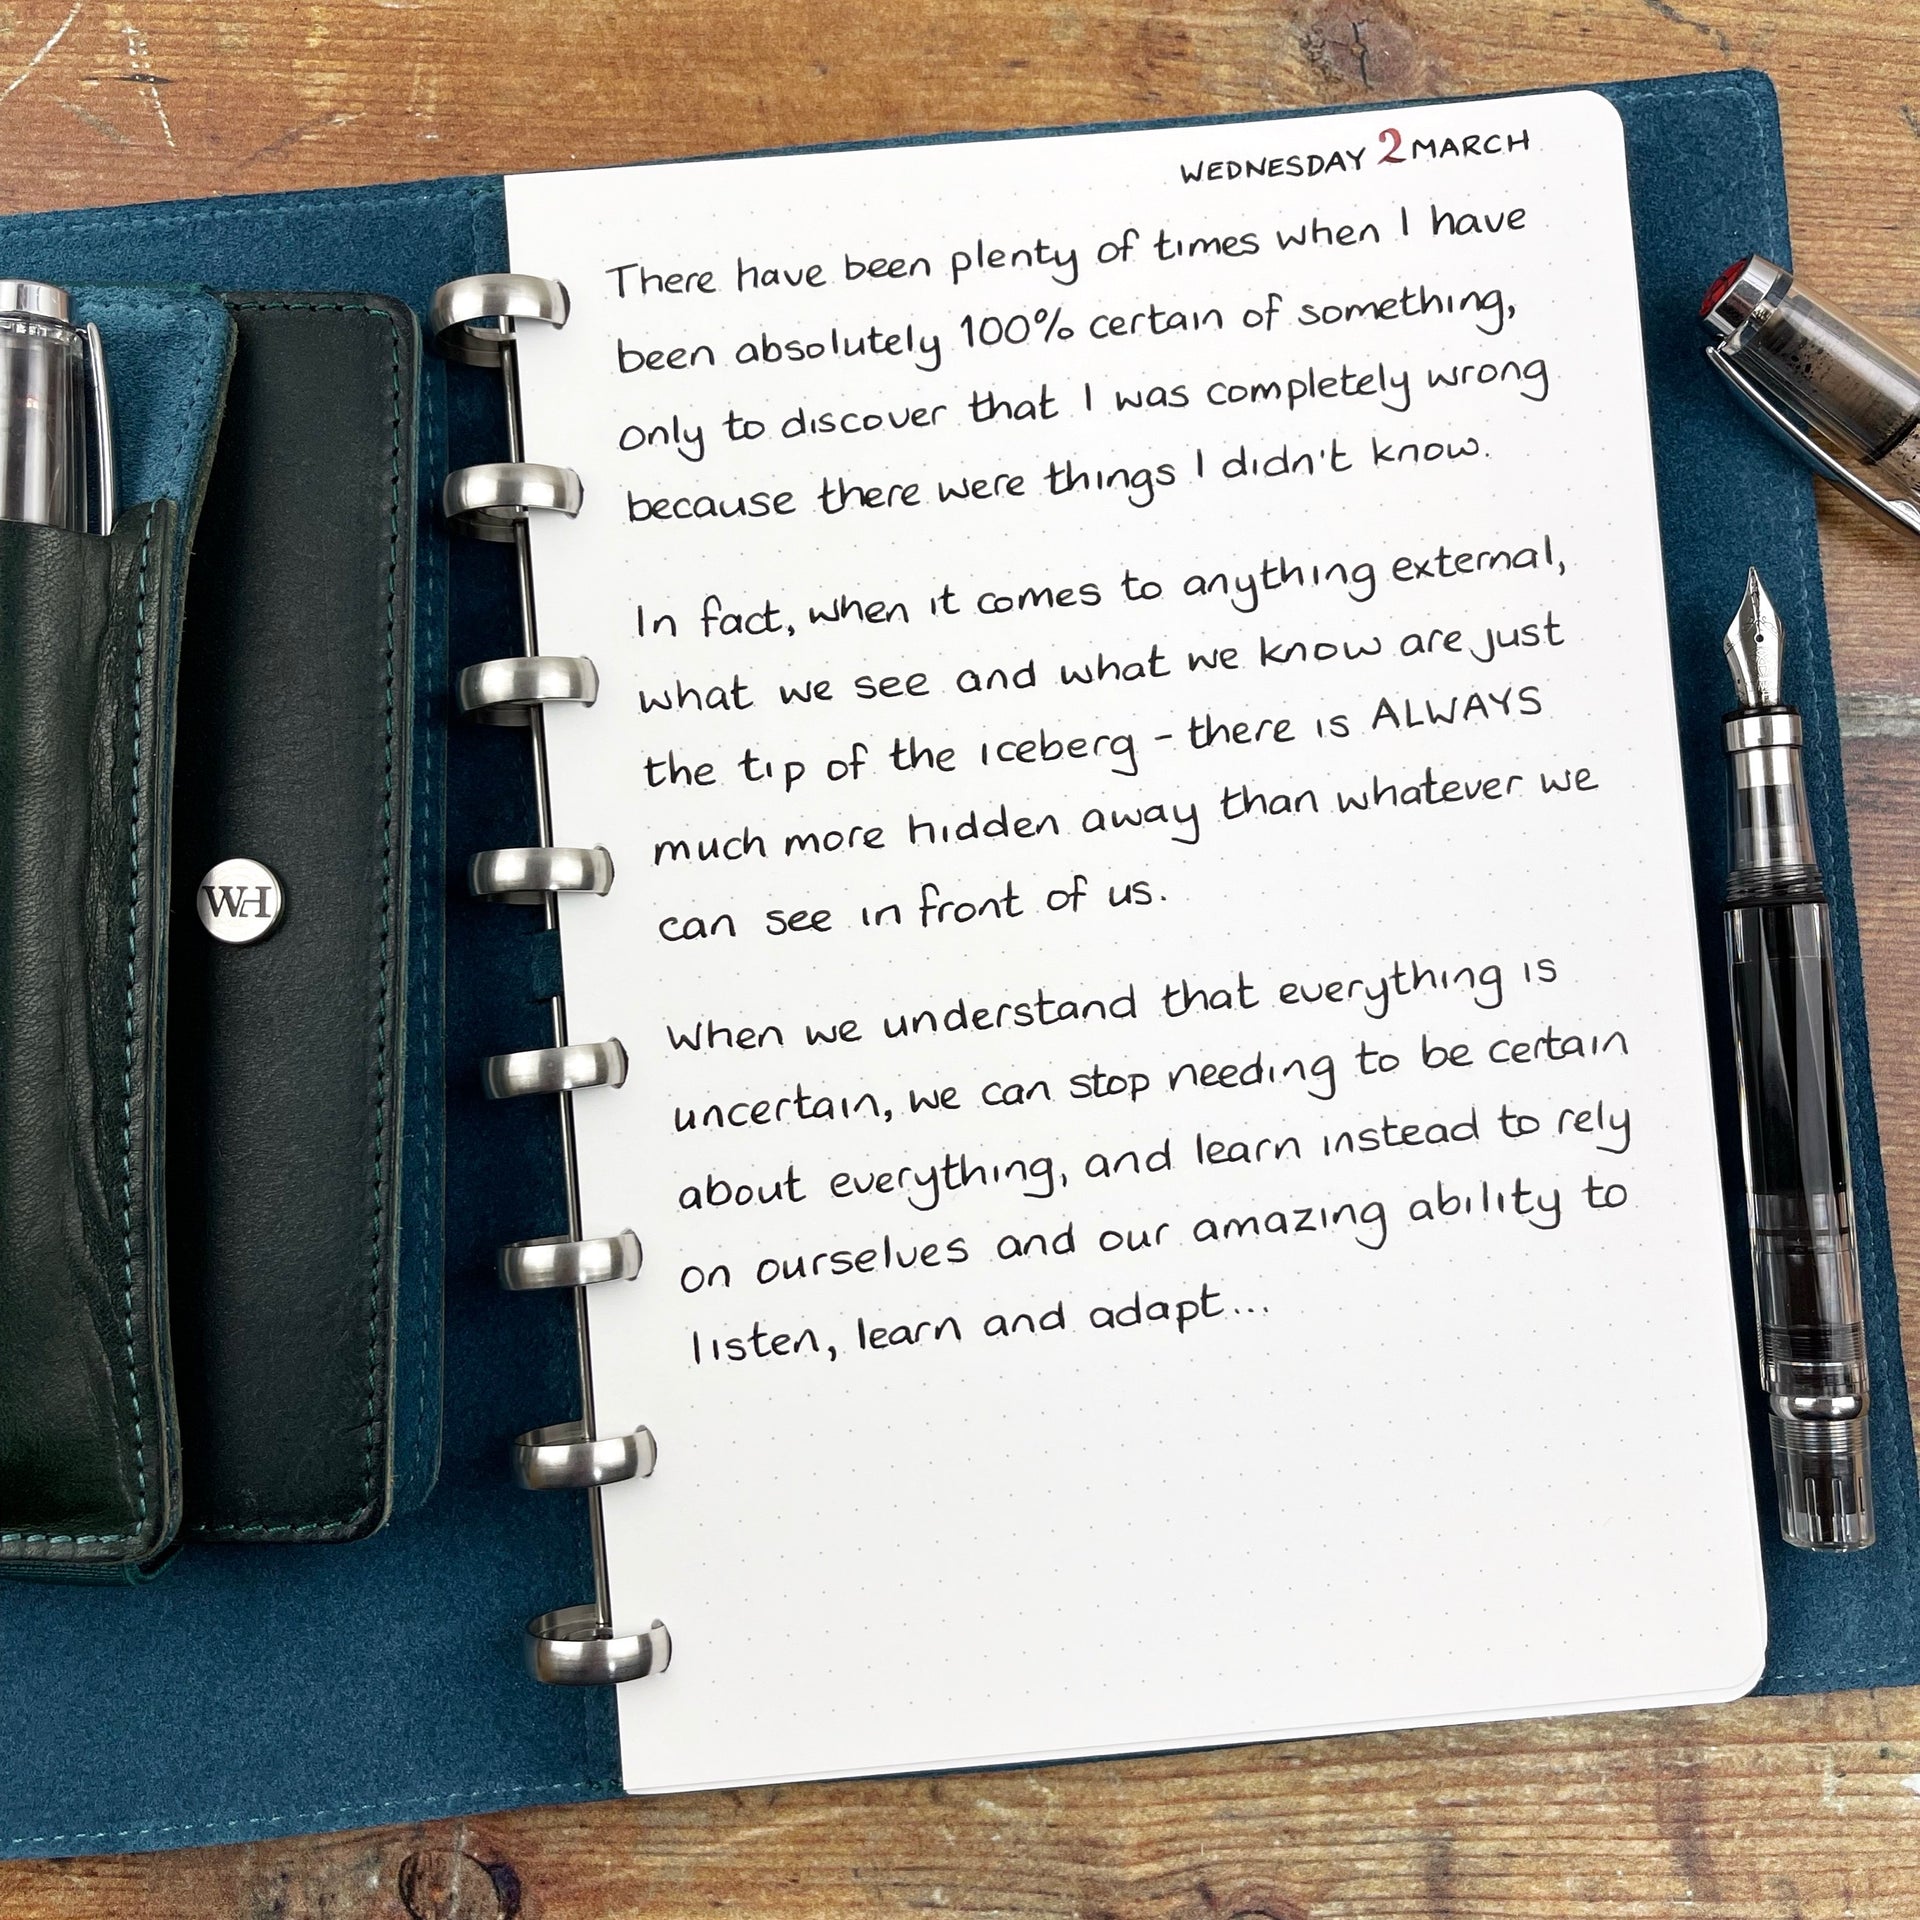 WEDNESDAY 2 MARCH
There have been plenty of times when I have
been absolutely 100% certain of something,
only to discover that I was completely wrong
because there were things I didn't know.
In fact, when it comes to anything external,
what we see and what we know are just
the tip of the iceberg - there is ALWAYS
much more hidden away than whatever we
can see in front of us.
When we understand that everything is
uncertain, we can stop needing to be certain
about everything, and learn instead to rely
on ourselves and our amazing ability to
listen, learn and adapt...
WH